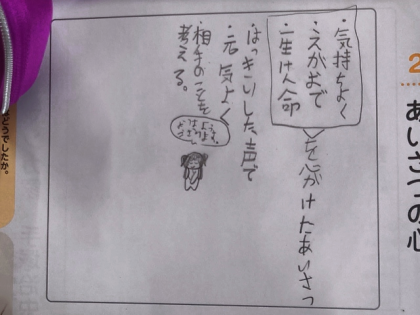 2
あいさつの心
・気持ちよく
・えがおで
・一生けん命
を心がけたあいさつ
・はっきりした声で
・元気よく
・相手のことを
考える。
おはようございます
どうでしたか。